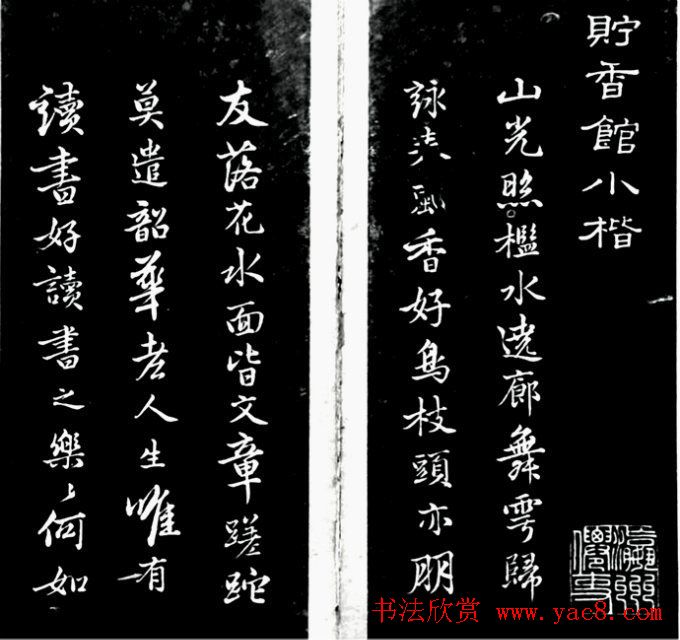 貯香館小楷
山光照檻水遶廊舞雩歸
詠春風香好鳥枝頭亦朋
友落花水面皆文章蹉跎
莫遣韶華老人生唯有
讀書好讀書之樂〻何如
书法欣赏 www.yac8.com